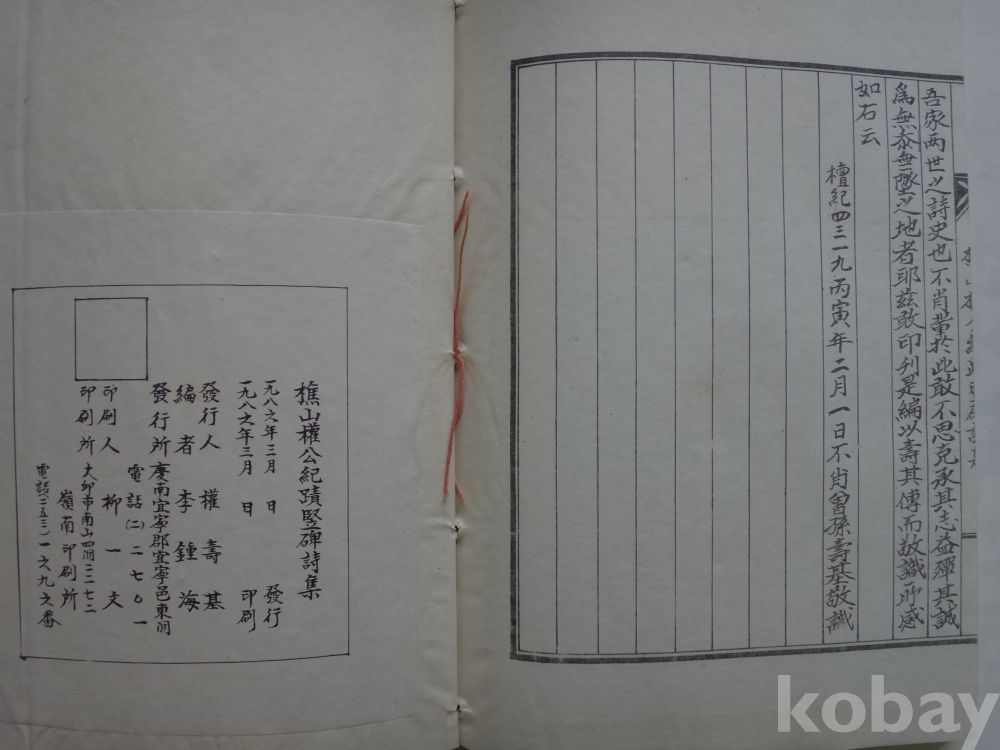 吾家两世之詩史也不肖輩於此敢不思克承其志益殫其誠
爲無忝無墜之地者耶玆敢印刊是編以壽其傳而故識所感
如右云
檀紀四三一九丙寅年二月一日不肖曾孫壽基敬識
樵山權公紀蹟竪碑詩集
一九八六年三月 日 發行
一九八六年三月 日 印刷
發行人 權壽基
編者 李鍾海
發行所 慶南宜寧郡宜寧邑東洞
電話(二)二七〇一
印刷人 柳一文
印刷所 大邱市南山四洞二二七二
嶺南印刷所
電話(二五三)一六九六番
kobay